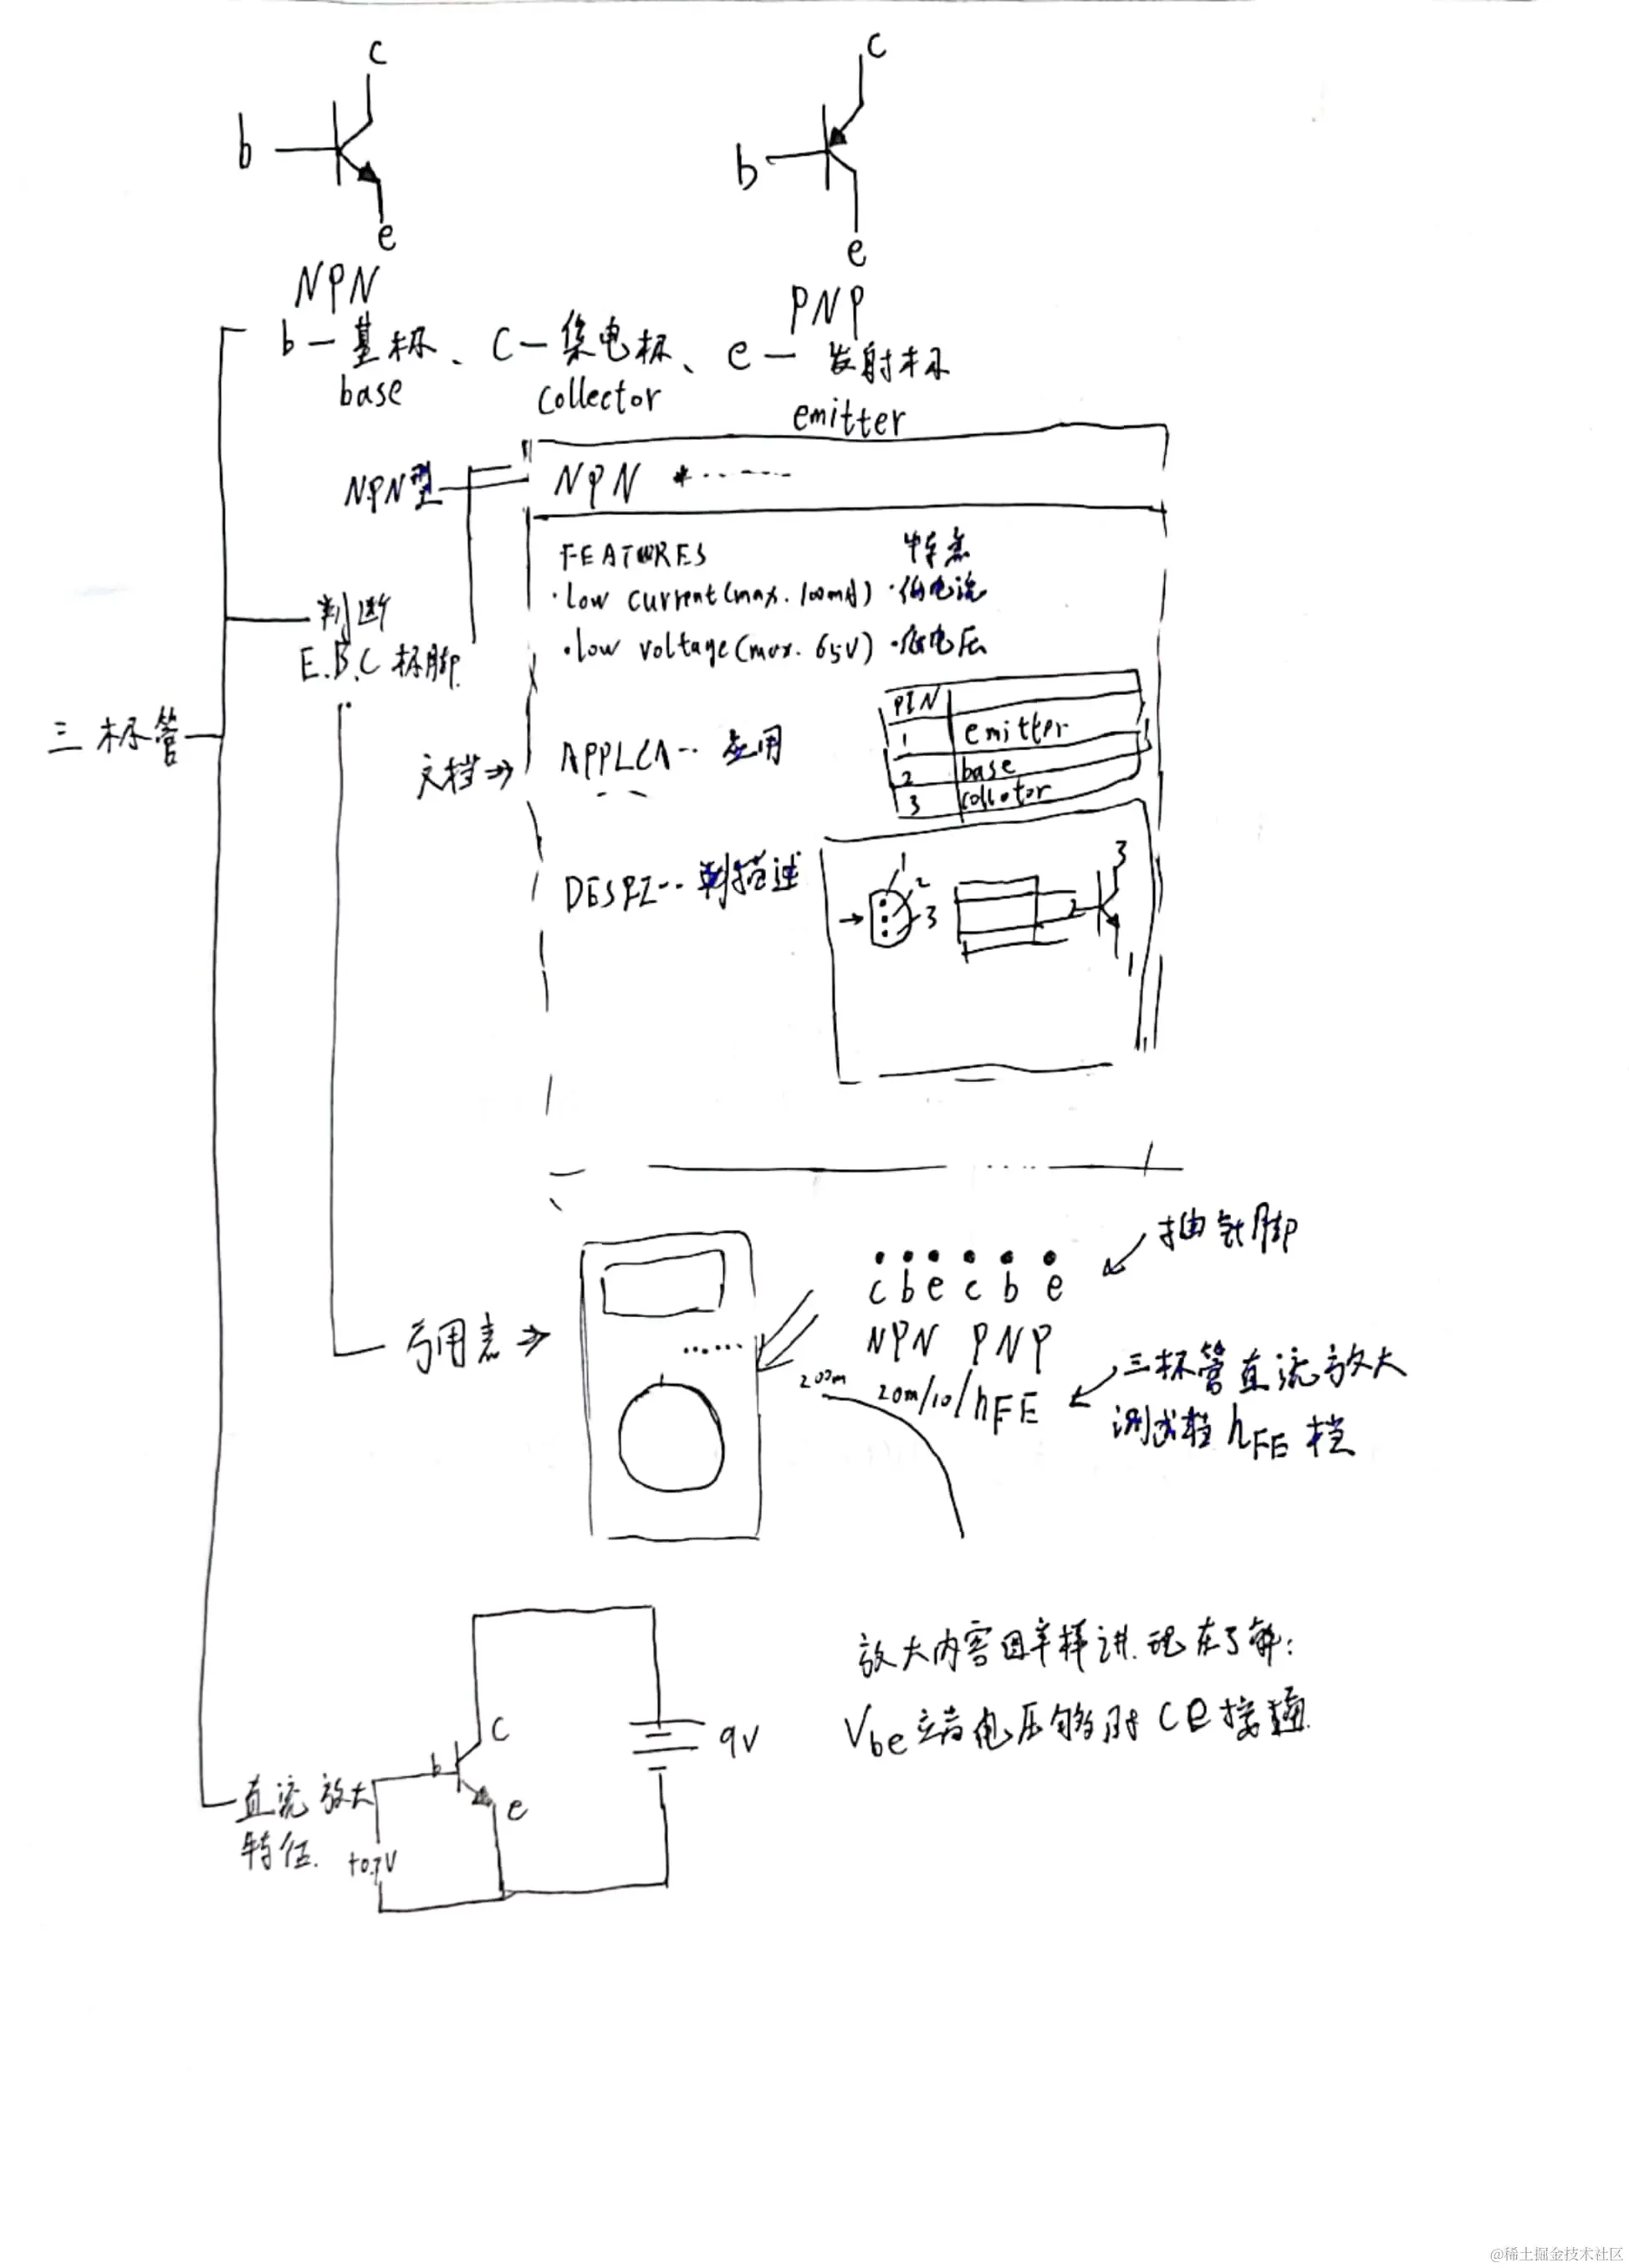 c
c
b
b
e
e
NPN
PNP
b—基极、c—集电极、e—发射极
base
collector
emitter
NPN型
NPN
FEATURES 特点
·low current(max. 100mA) ·低电流
·low voltage(max. 65V) ·低电压
判断
E.B.C极脚
PIN
1 emitter
2 base
3
三极管
文档⇒
APPLCA·· 应用
描述
1
2
3
3
2
1
插针脚
c b e c b e
NPN PNP
⇒
200m
20m/10/hFE
三极管直流放大
测试档hFE档
放大内容
现在了解:
Vbe端电压够时ce接通
c
b
e
9V
直流放大
特征.
+0.7V
@稀土掘金技术社区